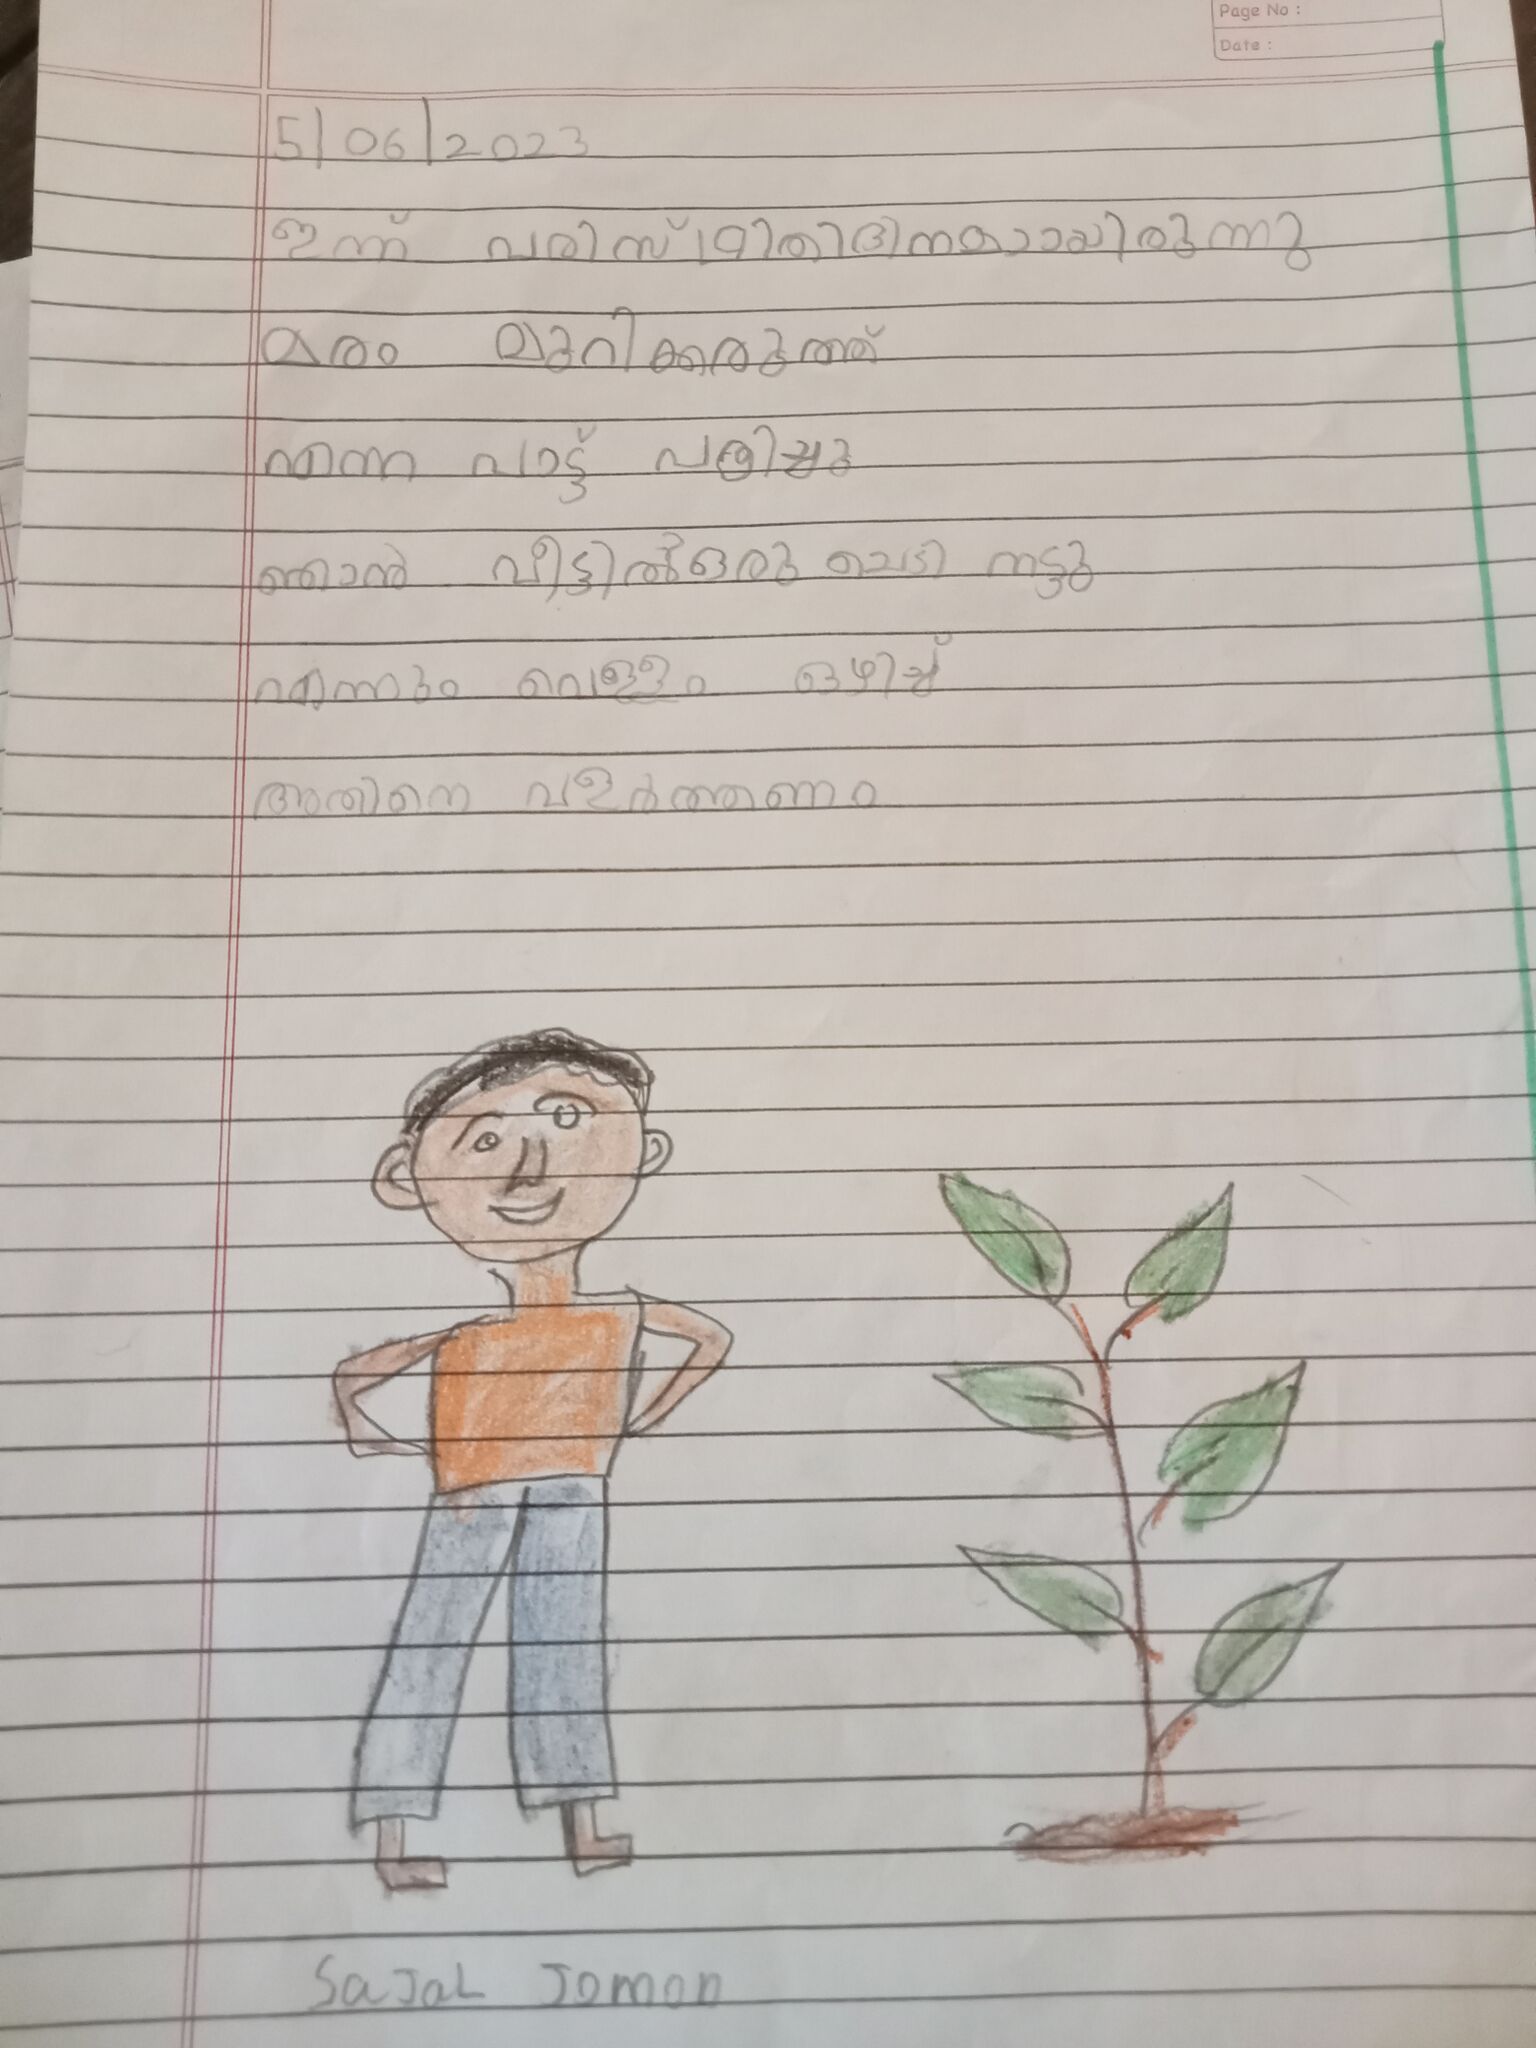 Page No :
Date :
5/06/2023
ഇന്ന് പരിസ്ഥിതിദിനമായിരുന്നു
മരം മുറിക്കരുത്
എന്ന പാട്ട് പഠിച്ചു
ഞാൻ വീട്ടിൽ ഒരു ചെടി നട്ടു
എന്നും വെള്ളം ഒഴിച്ച്
അതിനെ വളർത്തണം
Sajal Jomon